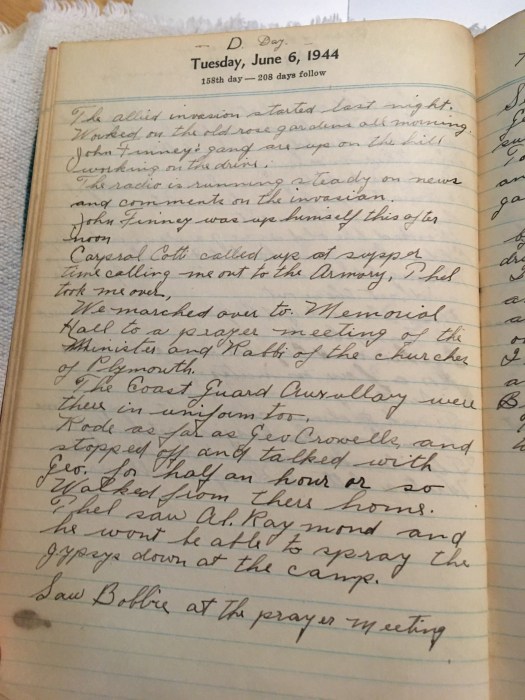 — D Day. —
Tuesday, June 6, 1944
158th day — 208 days follow
The allied invasion started last night.
Worked on the old rose gardens all morning.
John Finney's gang are up on the hill
working on the drive.
The radio is running steady on news
and comments on the invasion.
John Finney was up himself this after
noon
Carpral Cotti called up at supper
time calling me out to the Armory, Phel
took me over,
We marched over to Memorial
Hall to a prayer meeting of the
Minister and Rabbi of the churches
of Plymouth.
The Coast Guard Auxullary were
there in uniform too.
Rode as far as Geo Crowells and
stopped off and talked with
Geo. for half an hour or so
Walked from there home.
Phel saw Al. Raymond and
he wont be able to spray the
gypsys down at the camp.
Saw Bobbie at the prayer meeting